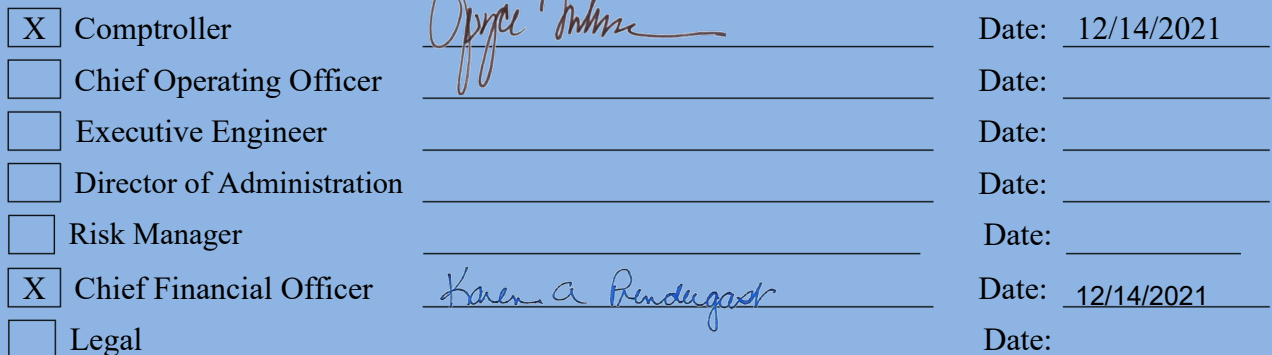 X Comptroller Date: 12/14/2021
Chief Operating Officer Date:
Executive Engineer Date:
Director of Administration Date:
Risk Manager Date:
X Chief Financial Officer Karen A Pendergast Date: 12/14/2021
Legal Date: